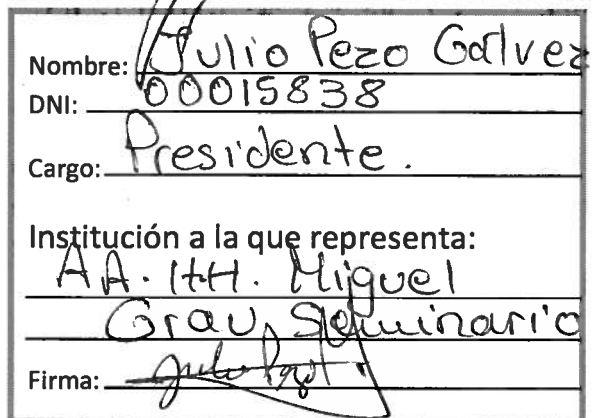 Nombre: Julio Pezo Galvez
DNI: 00015838
Cargo: Presidente.
Institución a la que representa:
AA. HH. Miguel
Grau, Seminario
Firma: